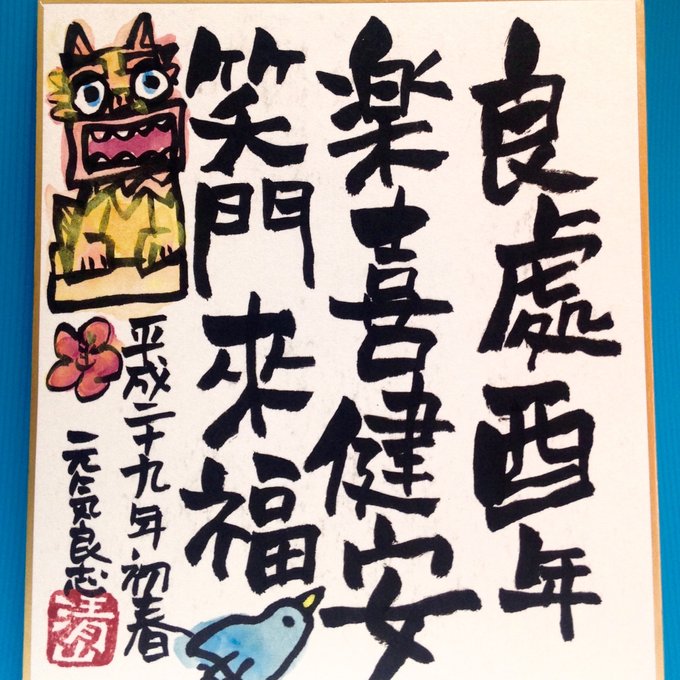 良處酉年
楽喜健安
笑門来福
平成二十九年初春
元気良志